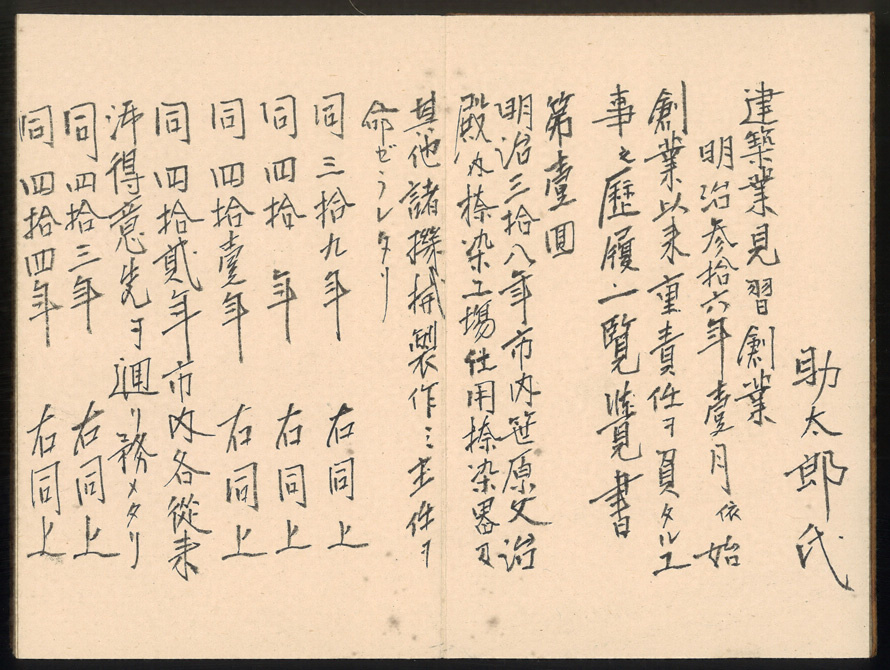 助太郎氏
建築業見習創業
明治参拾六年壹月依始
創業以来重責任ヲ負タル工
事之歴履一覧覚書
第壹回
明治三拾八年市内笹原文治
殿内捺染工場仕用捺染器及
其他諸機械製作ミ主任ヲ
命ゼラレタリ
同三拾九年 右同上
同四拾年 右同上
同四拾壹年 右同上
同四拾貳年市内各従来
得意先ヲ廻リ務メタリ
同四拾三年 右同上
同四拾四年 右同上